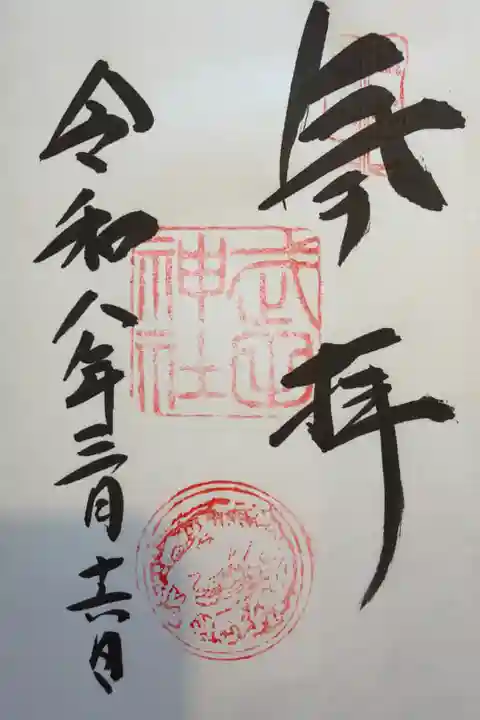 参拝
令和八年三月十六日
神社